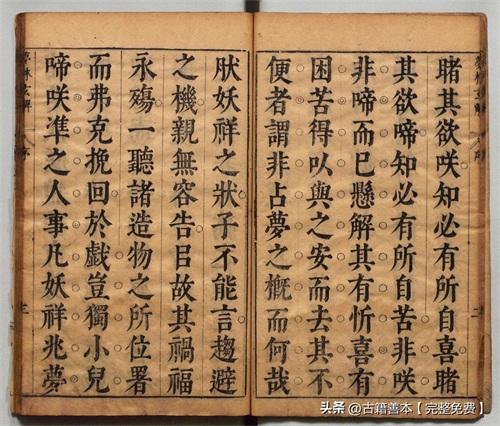 睹其欲咲知必有所自喜睹
其欲啼知必有所自苦非咲
非啼而已懸解其有忻喜有
困苦得以與之安而去其不
便者謂非占夢之槪而何哉
二
肰妖祥之狀子不能言趨避
之機親無容告㠯故其禍福
永殤一聽諸造物之所位署
而弗克挽回於戲豈獨小兒
啼咲準之人事凡妖祥兆夢
夢林玄解
序
三
头条 @古籍善本【完整免费】